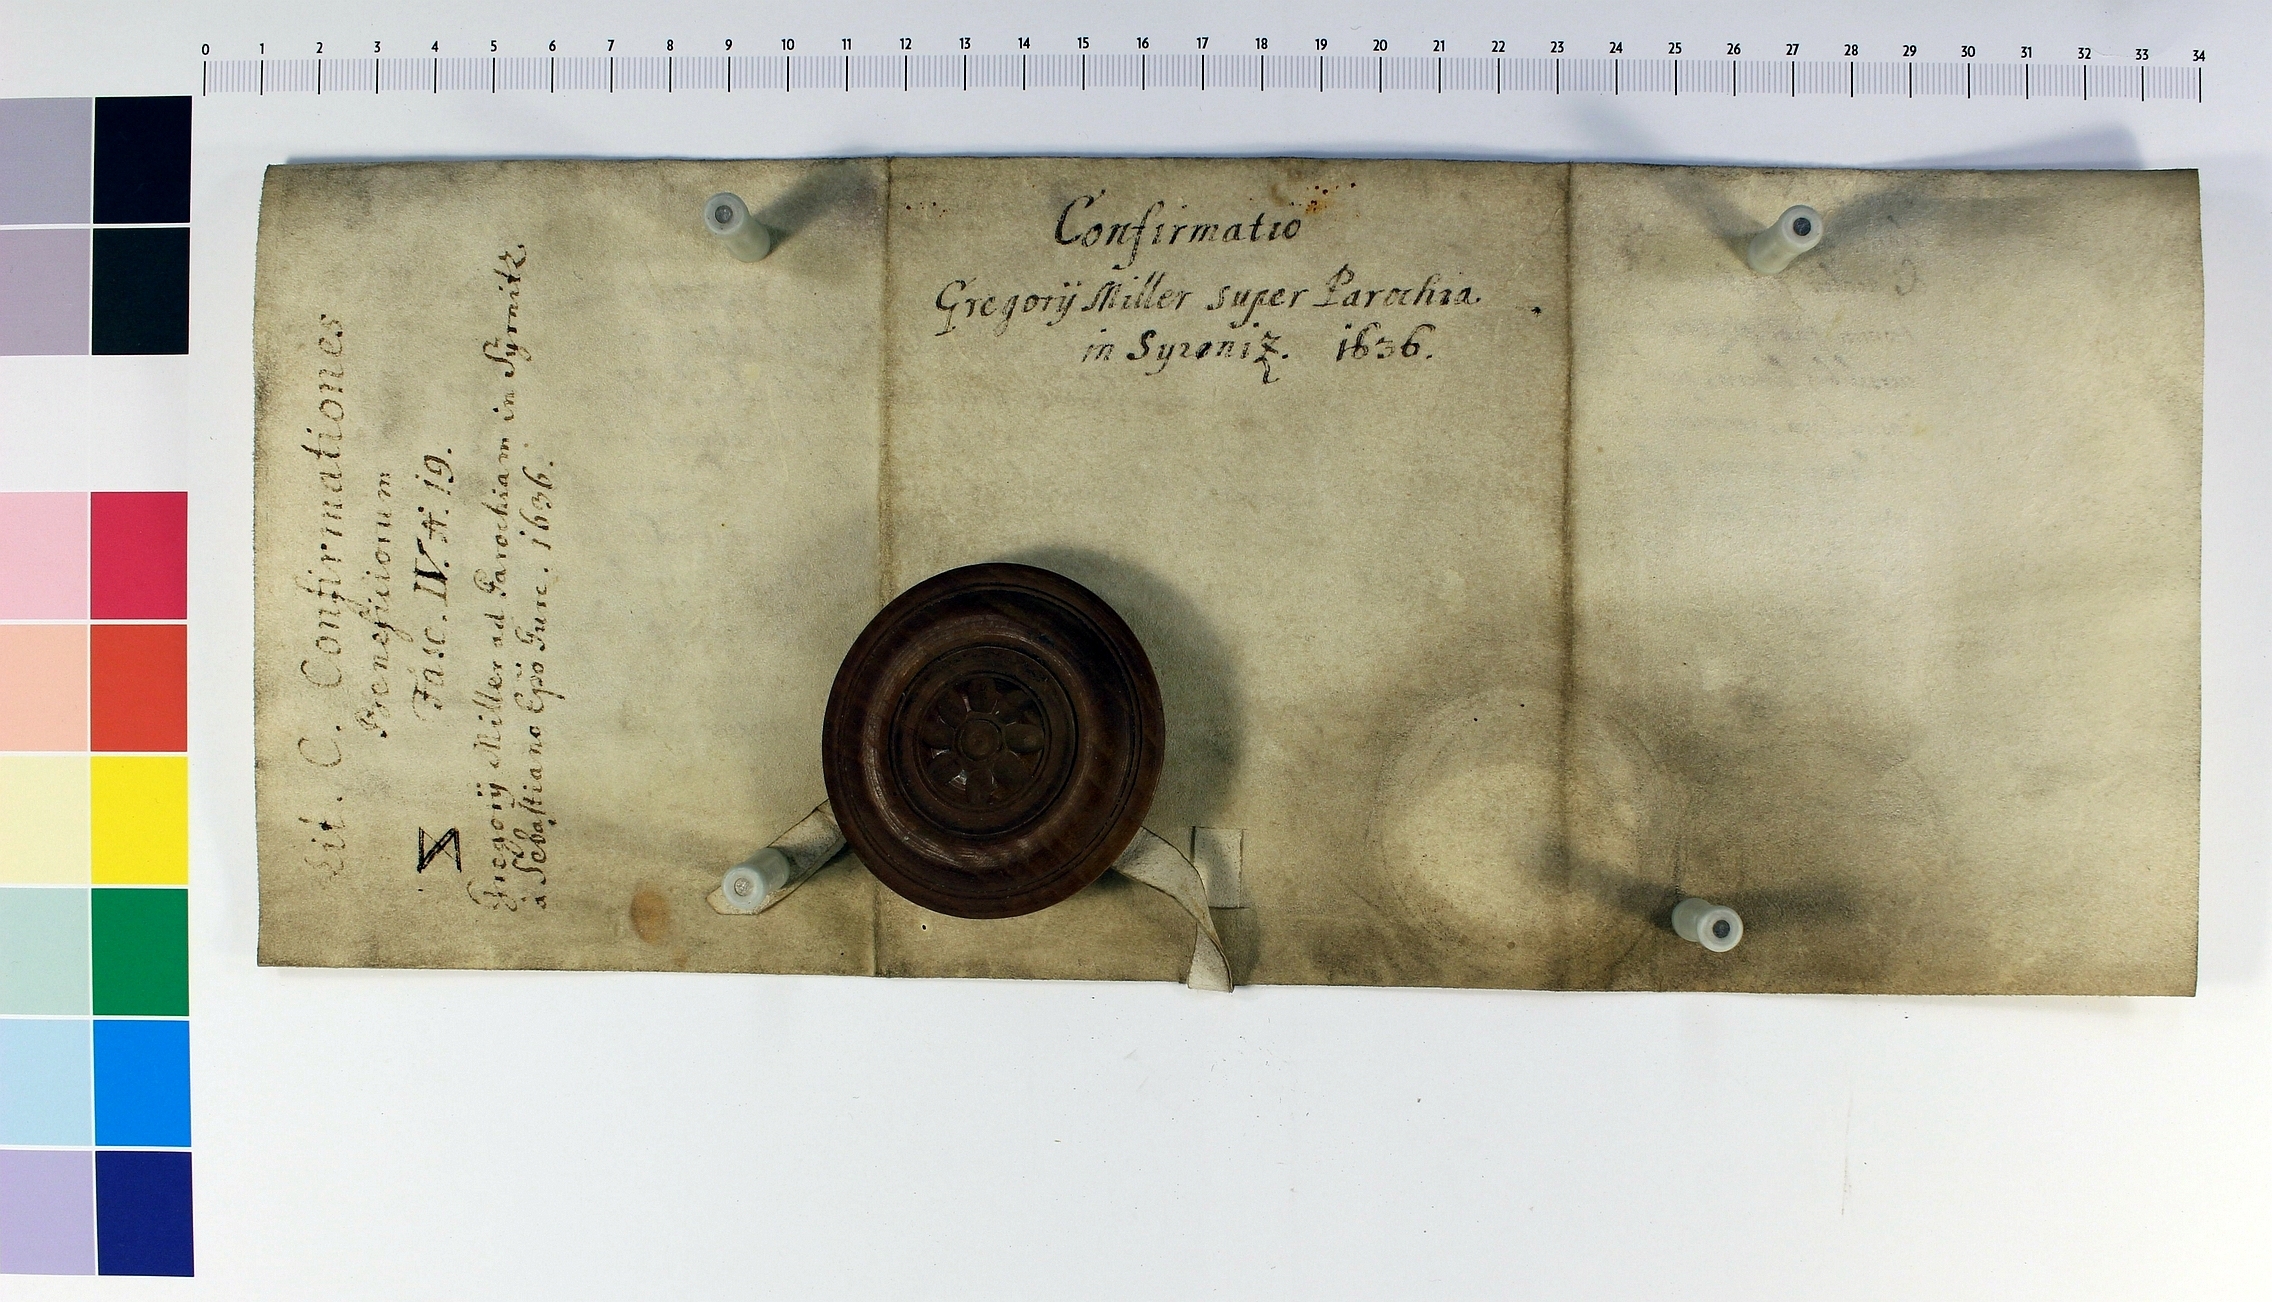 0 1 2 3 4 5 6 7 8 9 10 11 12 13 14 15 16 17 18 19 20 21 22 23 24 25 26 27 28 29 30 31 32 33 34
Confirmatio
Gregorÿ Miller super Parochia
in Syrniz. 1636.
Lit. C. Confirmationes
Beneficiorum
Fasc. IV. #. 19.
Gregorÿ Miller ad Parochiam in Syrnitz
a Sebastiano Epo Gurc. 1636.